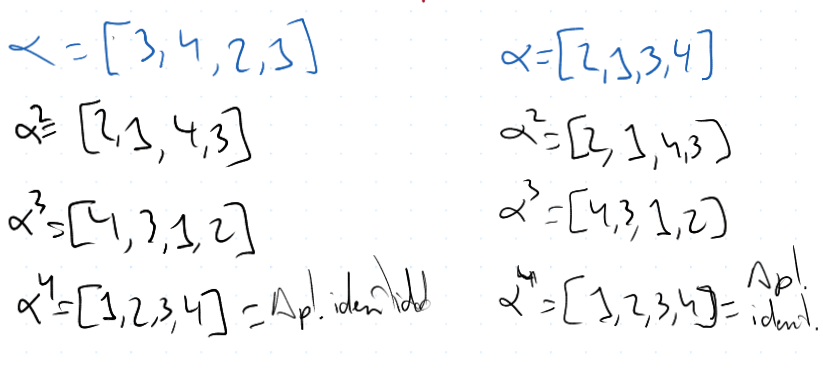 α = [3, 4, 2, 1]
α² = [2, 1, 4, 3]
α³ = [4, 3, 1, 2]
α⁴ = [1, 2, 3, 4] = Apl. identidad
α = [2, 1, 3, 4]
α² = [2, 1, 4, 3]
α³ = [4, 3, 1, 2]
α⁴ = [1, 2, 3, 4] = Apl.
ident.